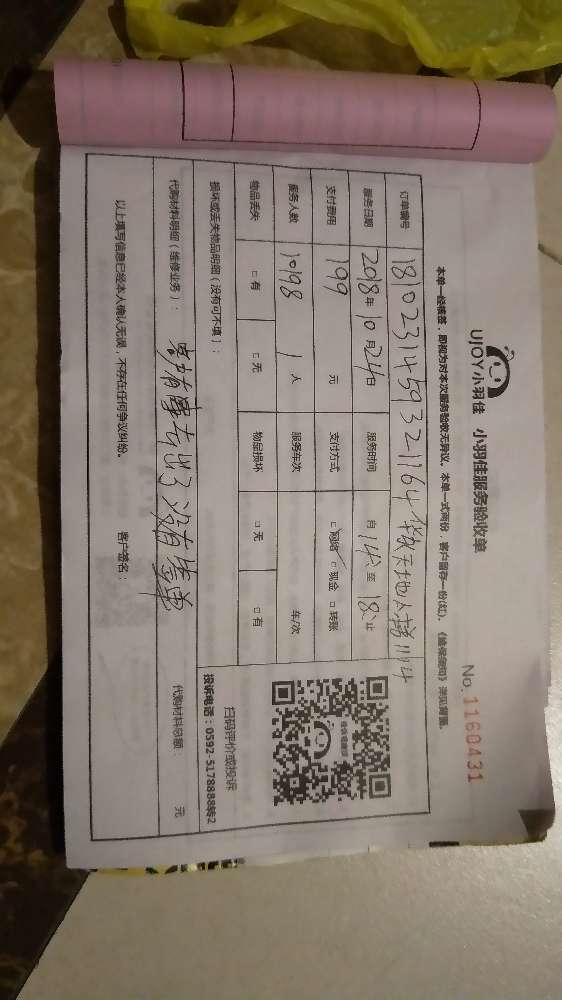 UJOY小羽佳 小羽佳服务验收单
No. 1160431
本单一经核签,即视为对本次服务验收无异议。本单一式两份,客户留存一份(红)。《维保须知》详见背面。
订单编号 1810231459321164 天地 1114
服务日期 2018年10月24日 服务时间 自14至18止
支付费用 199 元 支付方式 □网络 □现金 □转账
服务人数 10198 1人 服务车次 车/次
物品丢失 □有 □无 物品损坏 □无 □有
扫码评价或投诉
投诉电话:0592-5178888转2
损坏或丢失物品明细(没有可不填):
代购材料明细(维修业务): 客 有事去出了没有签单 代购材料总额: 元
以上填写信息已经本人确认无误,不存在任何争议纠纷。 客户签名: